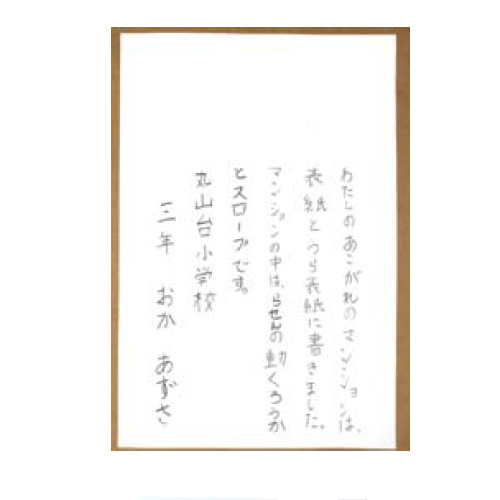 わたしのあこがれのマンションは、
表紙とうら表紙に書きました。
マンションの中は、らせんの動くろうか
とスロープです。
丸山台小学校
三年 おか あずさ